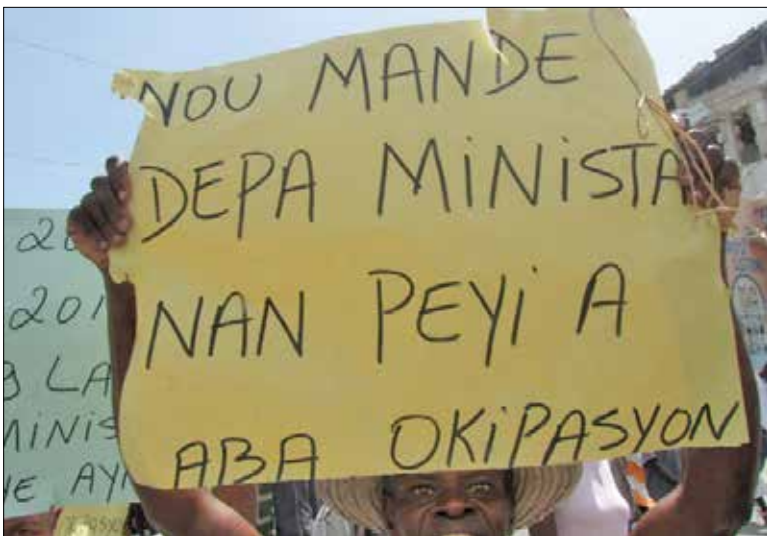 NOU MANDE
DEPA MINISTA
NAN PEYI A
ABA OKIPASYON
201
LA